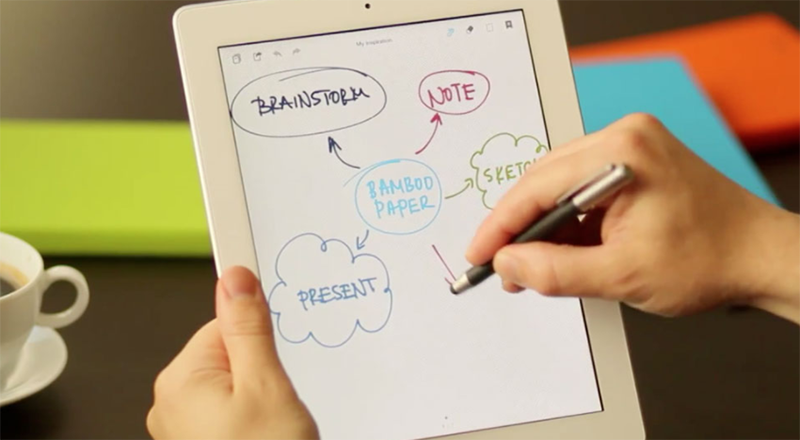 My Inspiration
BRAINSTORM
NOTE
BAMBOO
PAPER
PRESENT